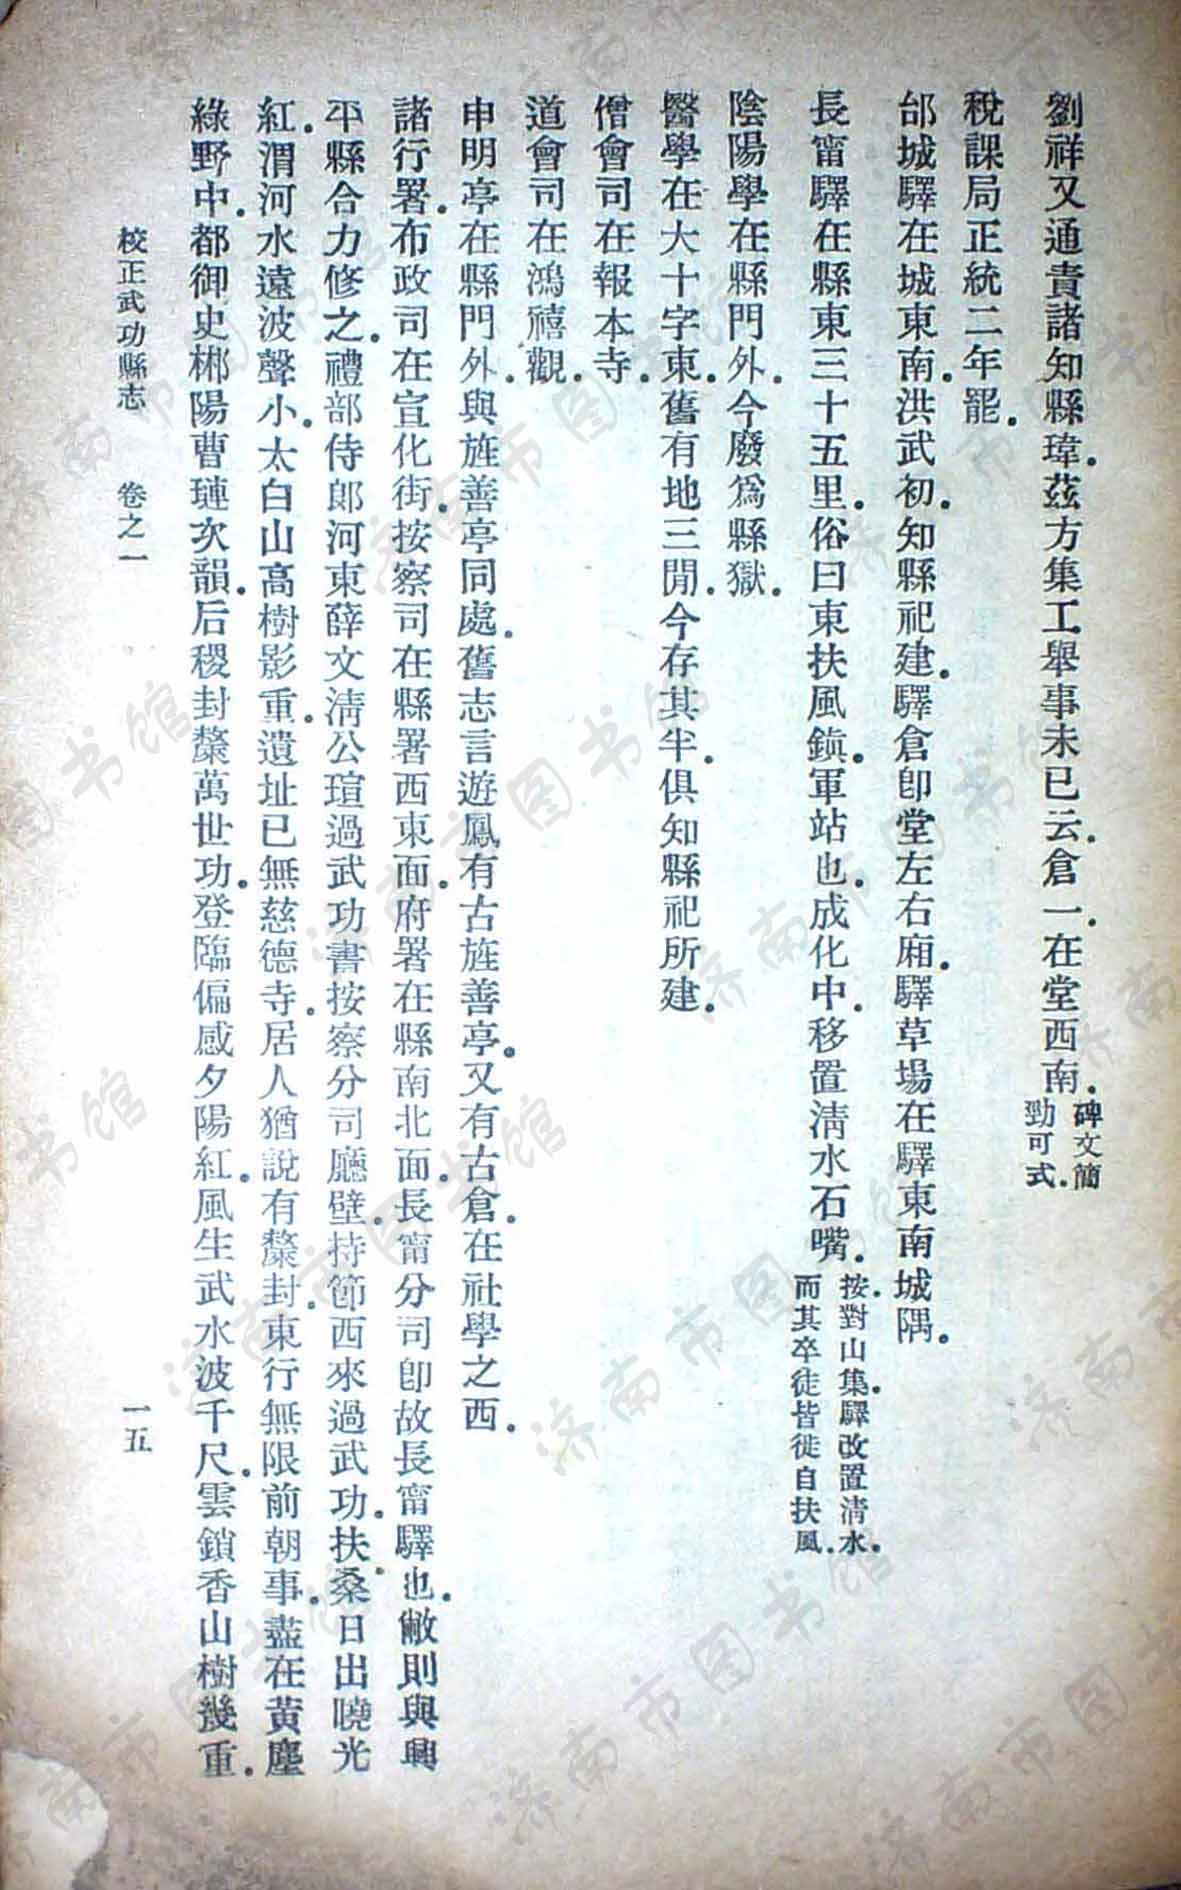 劉祥又通責諸知縣瑋．茲方集工舉事未已云．倉一．在堂西南．碑文簡勁可式．
稅課局正統二年罷．
邰城驛在城東南．洪武初．知縣祀建．驛倉卽堂左右廂．驛草場在驛東南城隅．
長甯驛在縣東三十五里．俗曰東扶風鎭．軍站也．成化中．移置淸水石嘴．按．對山集．驛改置淸水．而其卒徒皆徙自扶風．
陰陽學在縣門外．今廢爲縣獄．
醫學在大十字東．舊有地三閒．今存其半．俱知縣祀所建．
僧會司在報本寺．
道會司在鴻禧觀．
申明亭在縣門外．與旌善亭同處．舊志言遊鳳有古旌善亭．又有古倉．在社學之西．
諸行署．布政司在宣化街．按察司在縣署西東面．府署在縣南北面．長甯分司卽故長甯驛也．敝則與興
平縣合力修之．禮部侍郎河東薛文淸公瑄過武功書按察分司廳壁．持節西來過武功．扶桑日出曉光
紅．渭河水遠波聲小．太白山高樹影重．遺址已無慈德寺．居人猶說有斄封．東行無限前朝事．盡在黃塵
綠野中．都御史郴陽曹璉次韻．后稷封斄萬世功．登臨偏感夕陽紅．風生武水波千尺．雲鎖香山樹幾重．
校正武功縣志　卷之一　一五
济南市图书馆